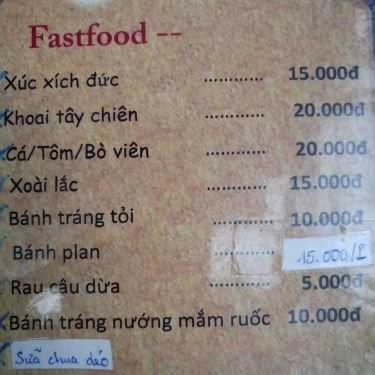 Fastfood --
Xúc xích đức ............ 15.000đ
Khoai tây chiên ............ 20.000đ
Cá/Tôm/Bò viên ............ 20.000đ
Xoài lắc ............ 15.000đ
Bánh tráng tỏi ............ 10.000đ
Bánh plan ............ 15.000/2
Rau câu dừa ............ 5.000đ
Bánh tráng nướng mắm ruốc 10.000đ
Sữa chua dẻo